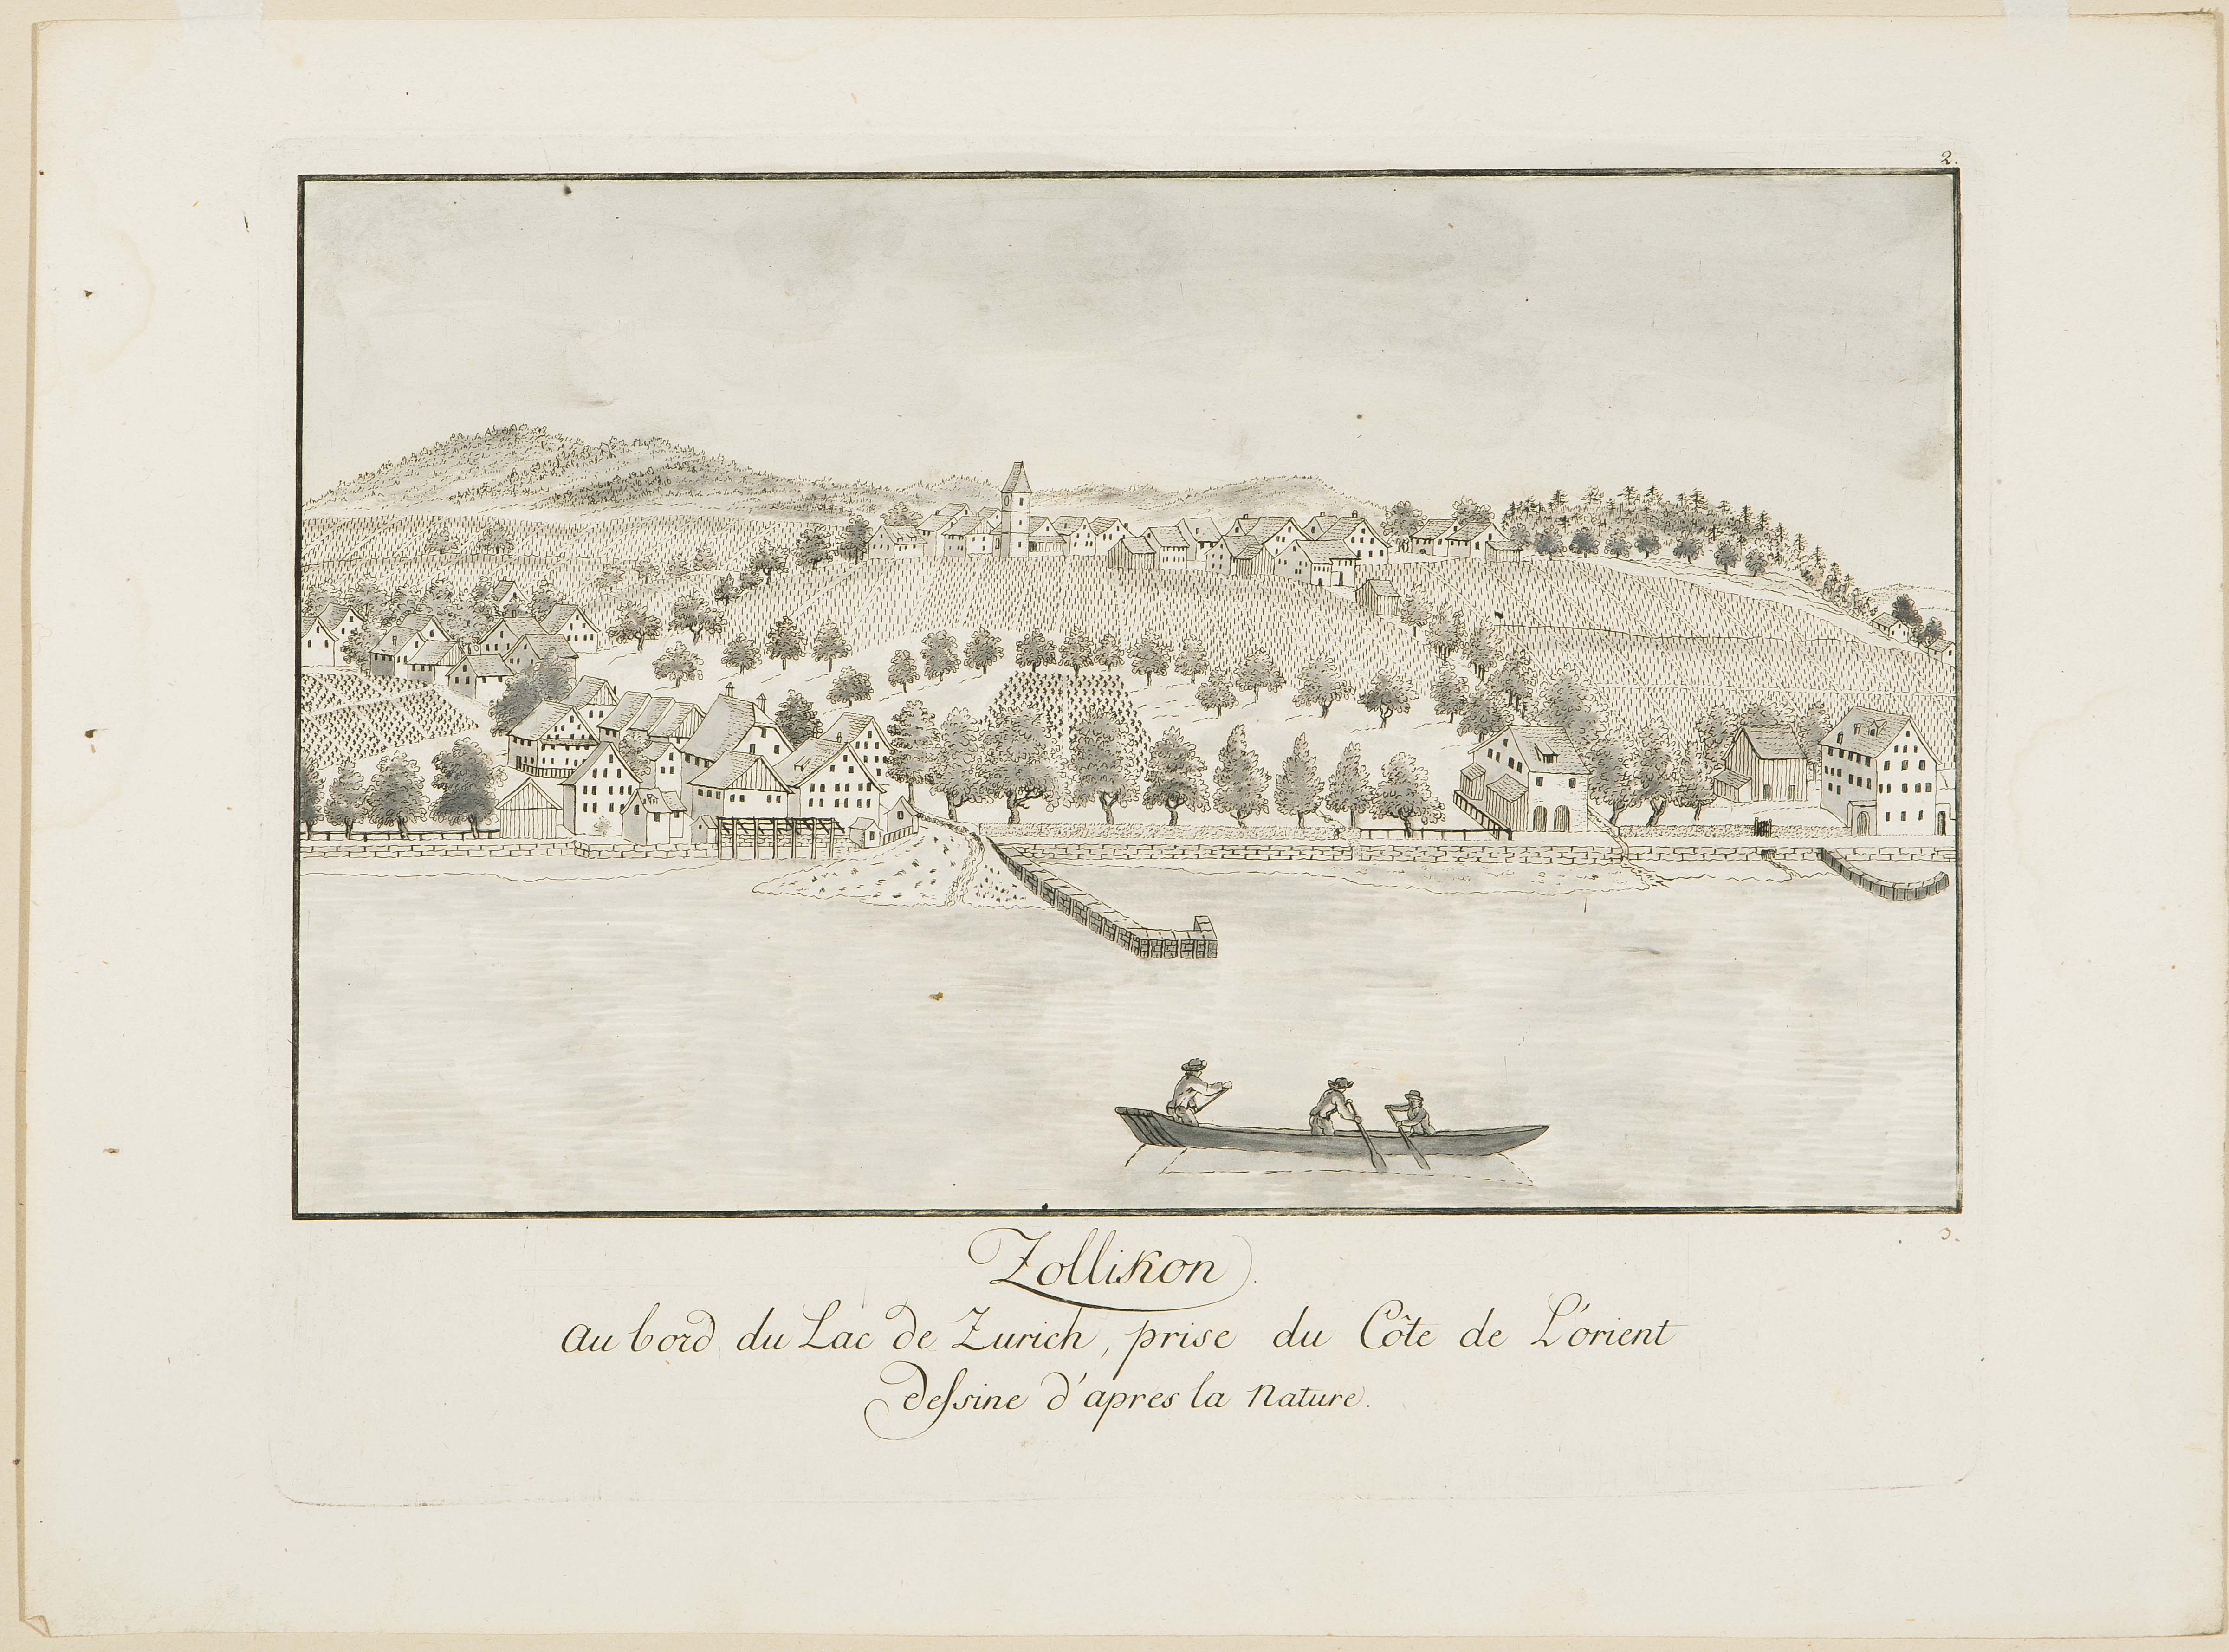 2.
Zollikon.
au bord du Lac de Zurich, prise du Côte de L'orient
deſsine d'apres la nature.